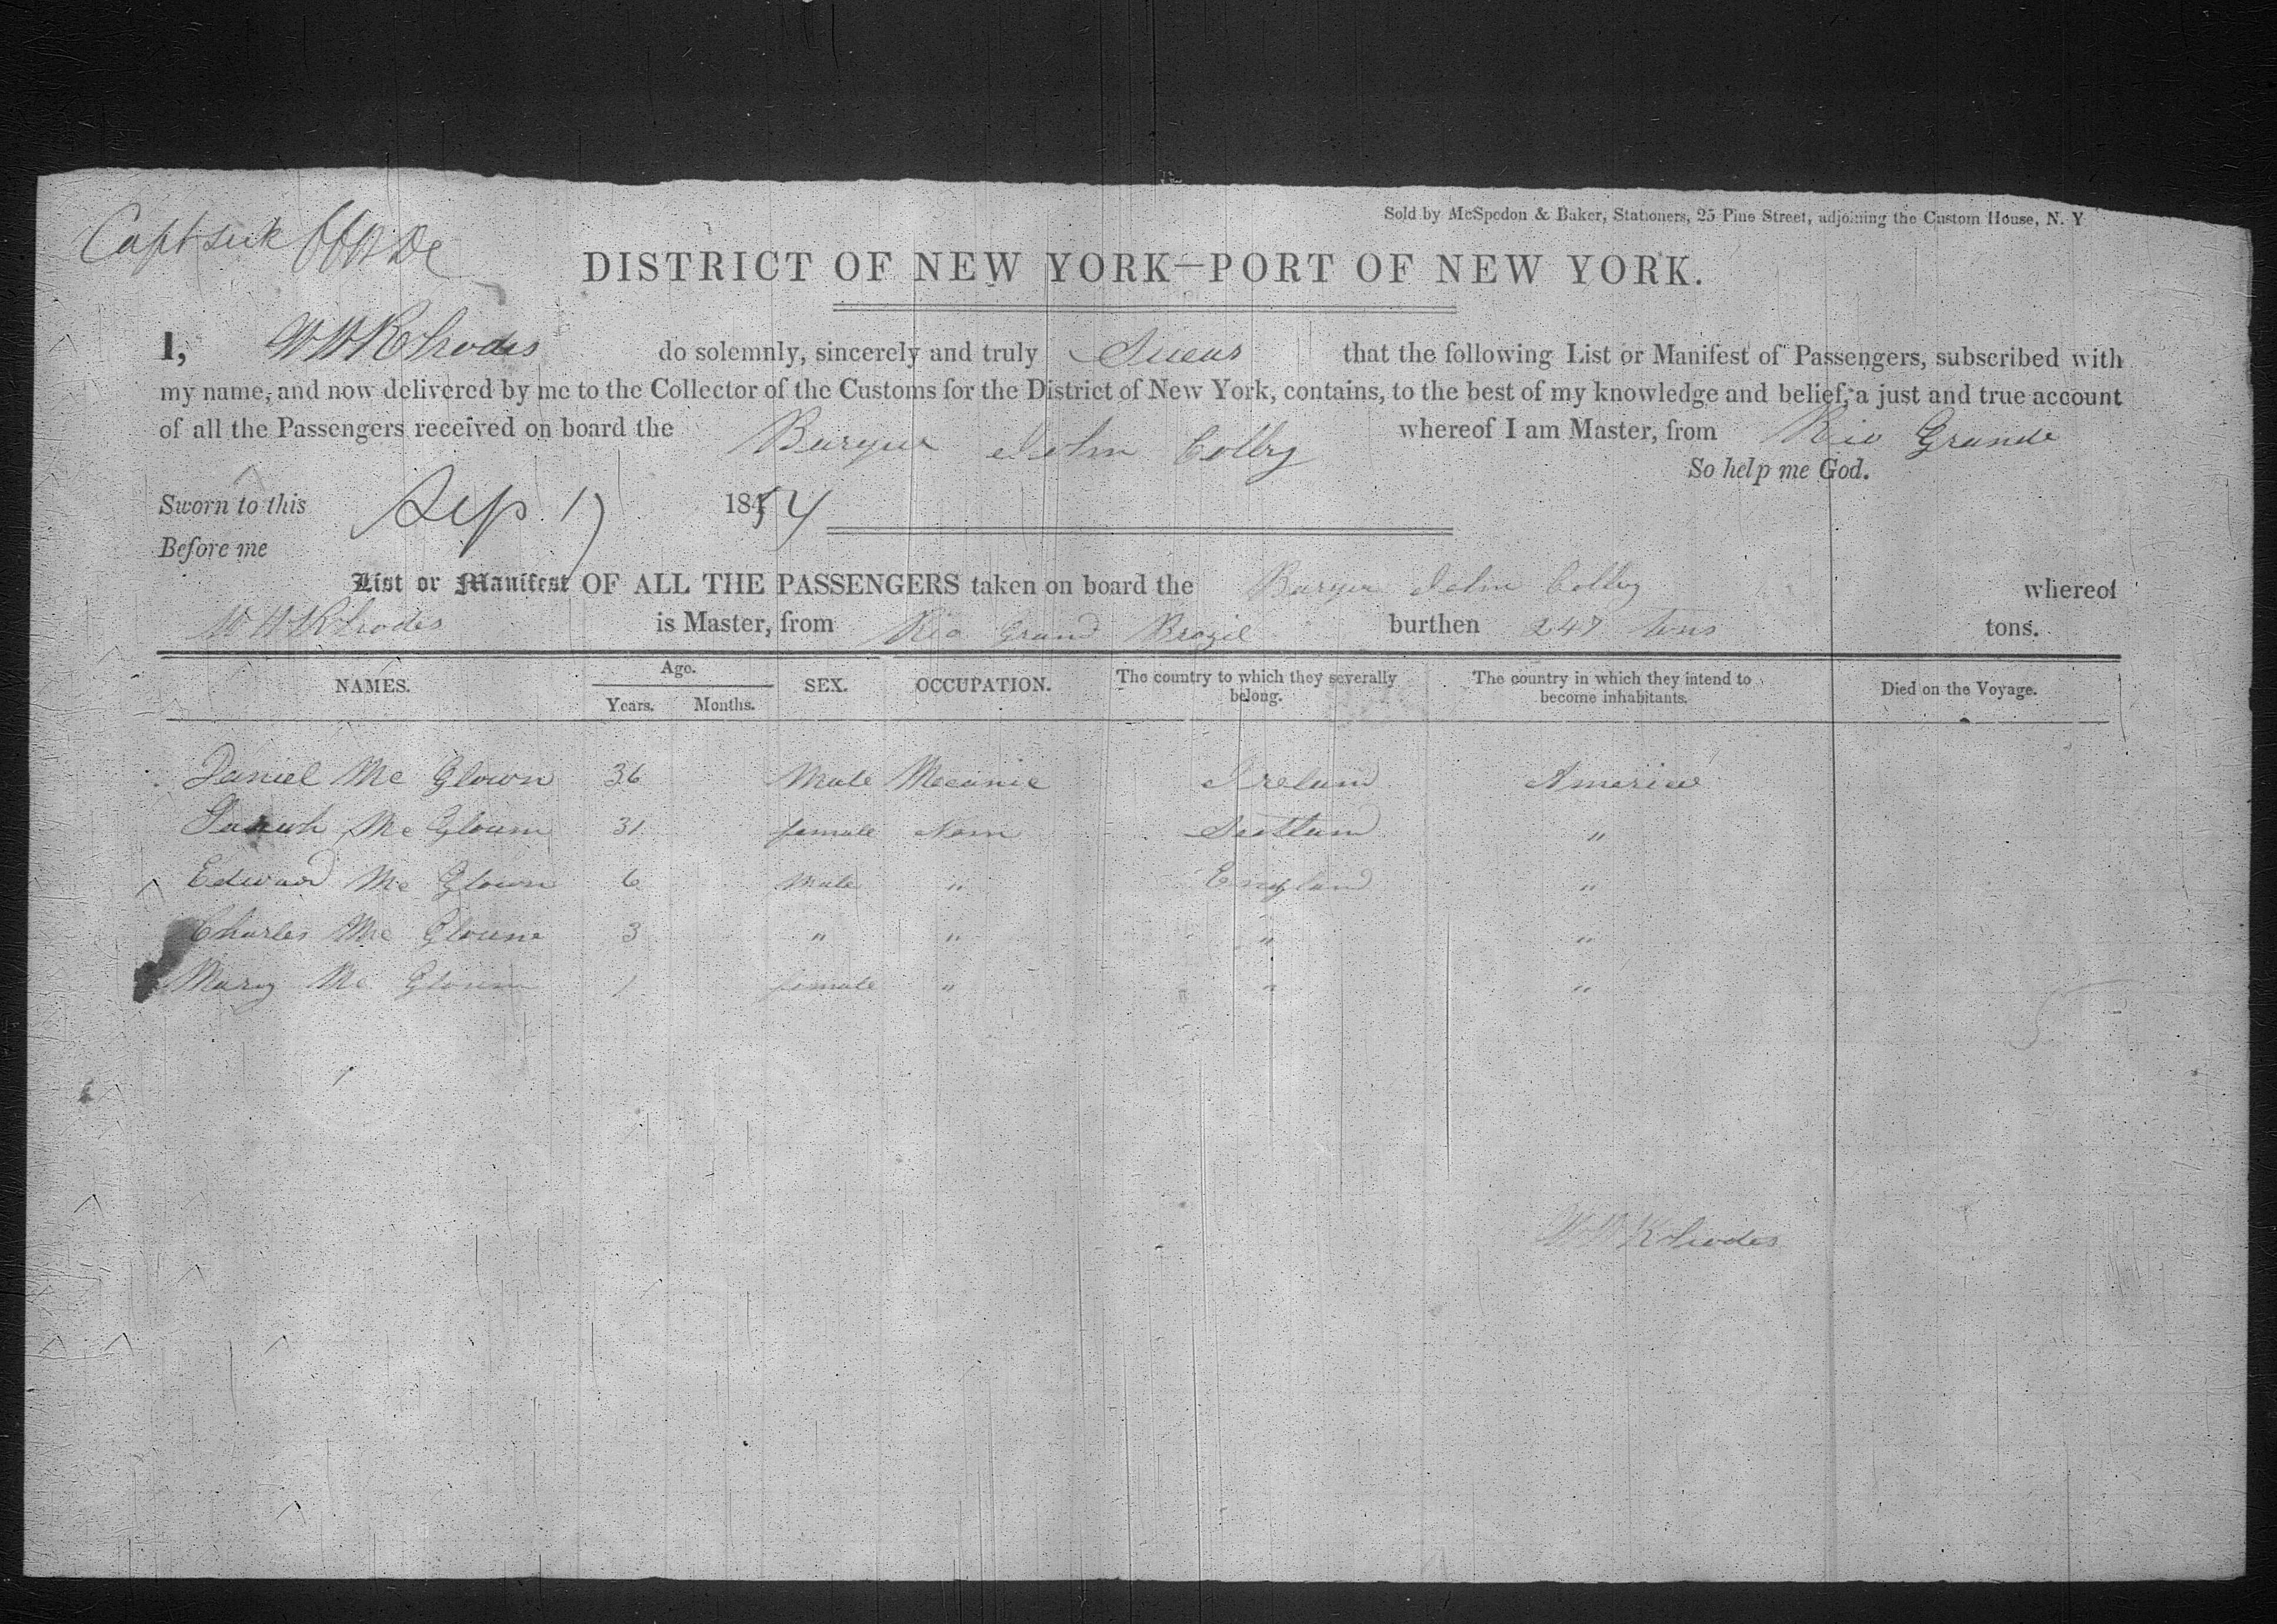 Sold by McSpedon & Baker, Stationers, 25 Pine Street, adjoining the Custom House, N. Y
Capt sick
DISTRICT OF NEW YORK—PORT OF NEW YORK.
I, W W Rhodes do solemnly, sincerely and truly Swear that the following List or Manifest of Passengers, subscribed with
my name, and now delivered by me to the Collector of the Customs for the District of New York, contains, to the best of my knowledge and belief, a just and true account
of all the Passengers received on board the Barque John Colby whereof I am Master, from Rio Grande
So help me God.
Sworn to this Sep 17 1854
Before me
List or Manifest OF ALL THE PASSENGERS taken on board the Barque John Colby whereof
W W Rhodes is Master, from Rio Grand Brazil burthen 247 tons tons.
NAMES. Age. Years. Months. SEX. OCCUPATION. The country to which they severally belong. The country in which they intend to become inhabitants. Died on the Voyage.
Daniel Mc Glown 36 Male Mecanic Ireland America
Mc Gloum 31 female Non Scotland "
Edward Mc Glown 6 Male " England "
Charles Mc Gloune 3 " " " "
Mary Mc Gloum 1 female " " "
W W Rhodes